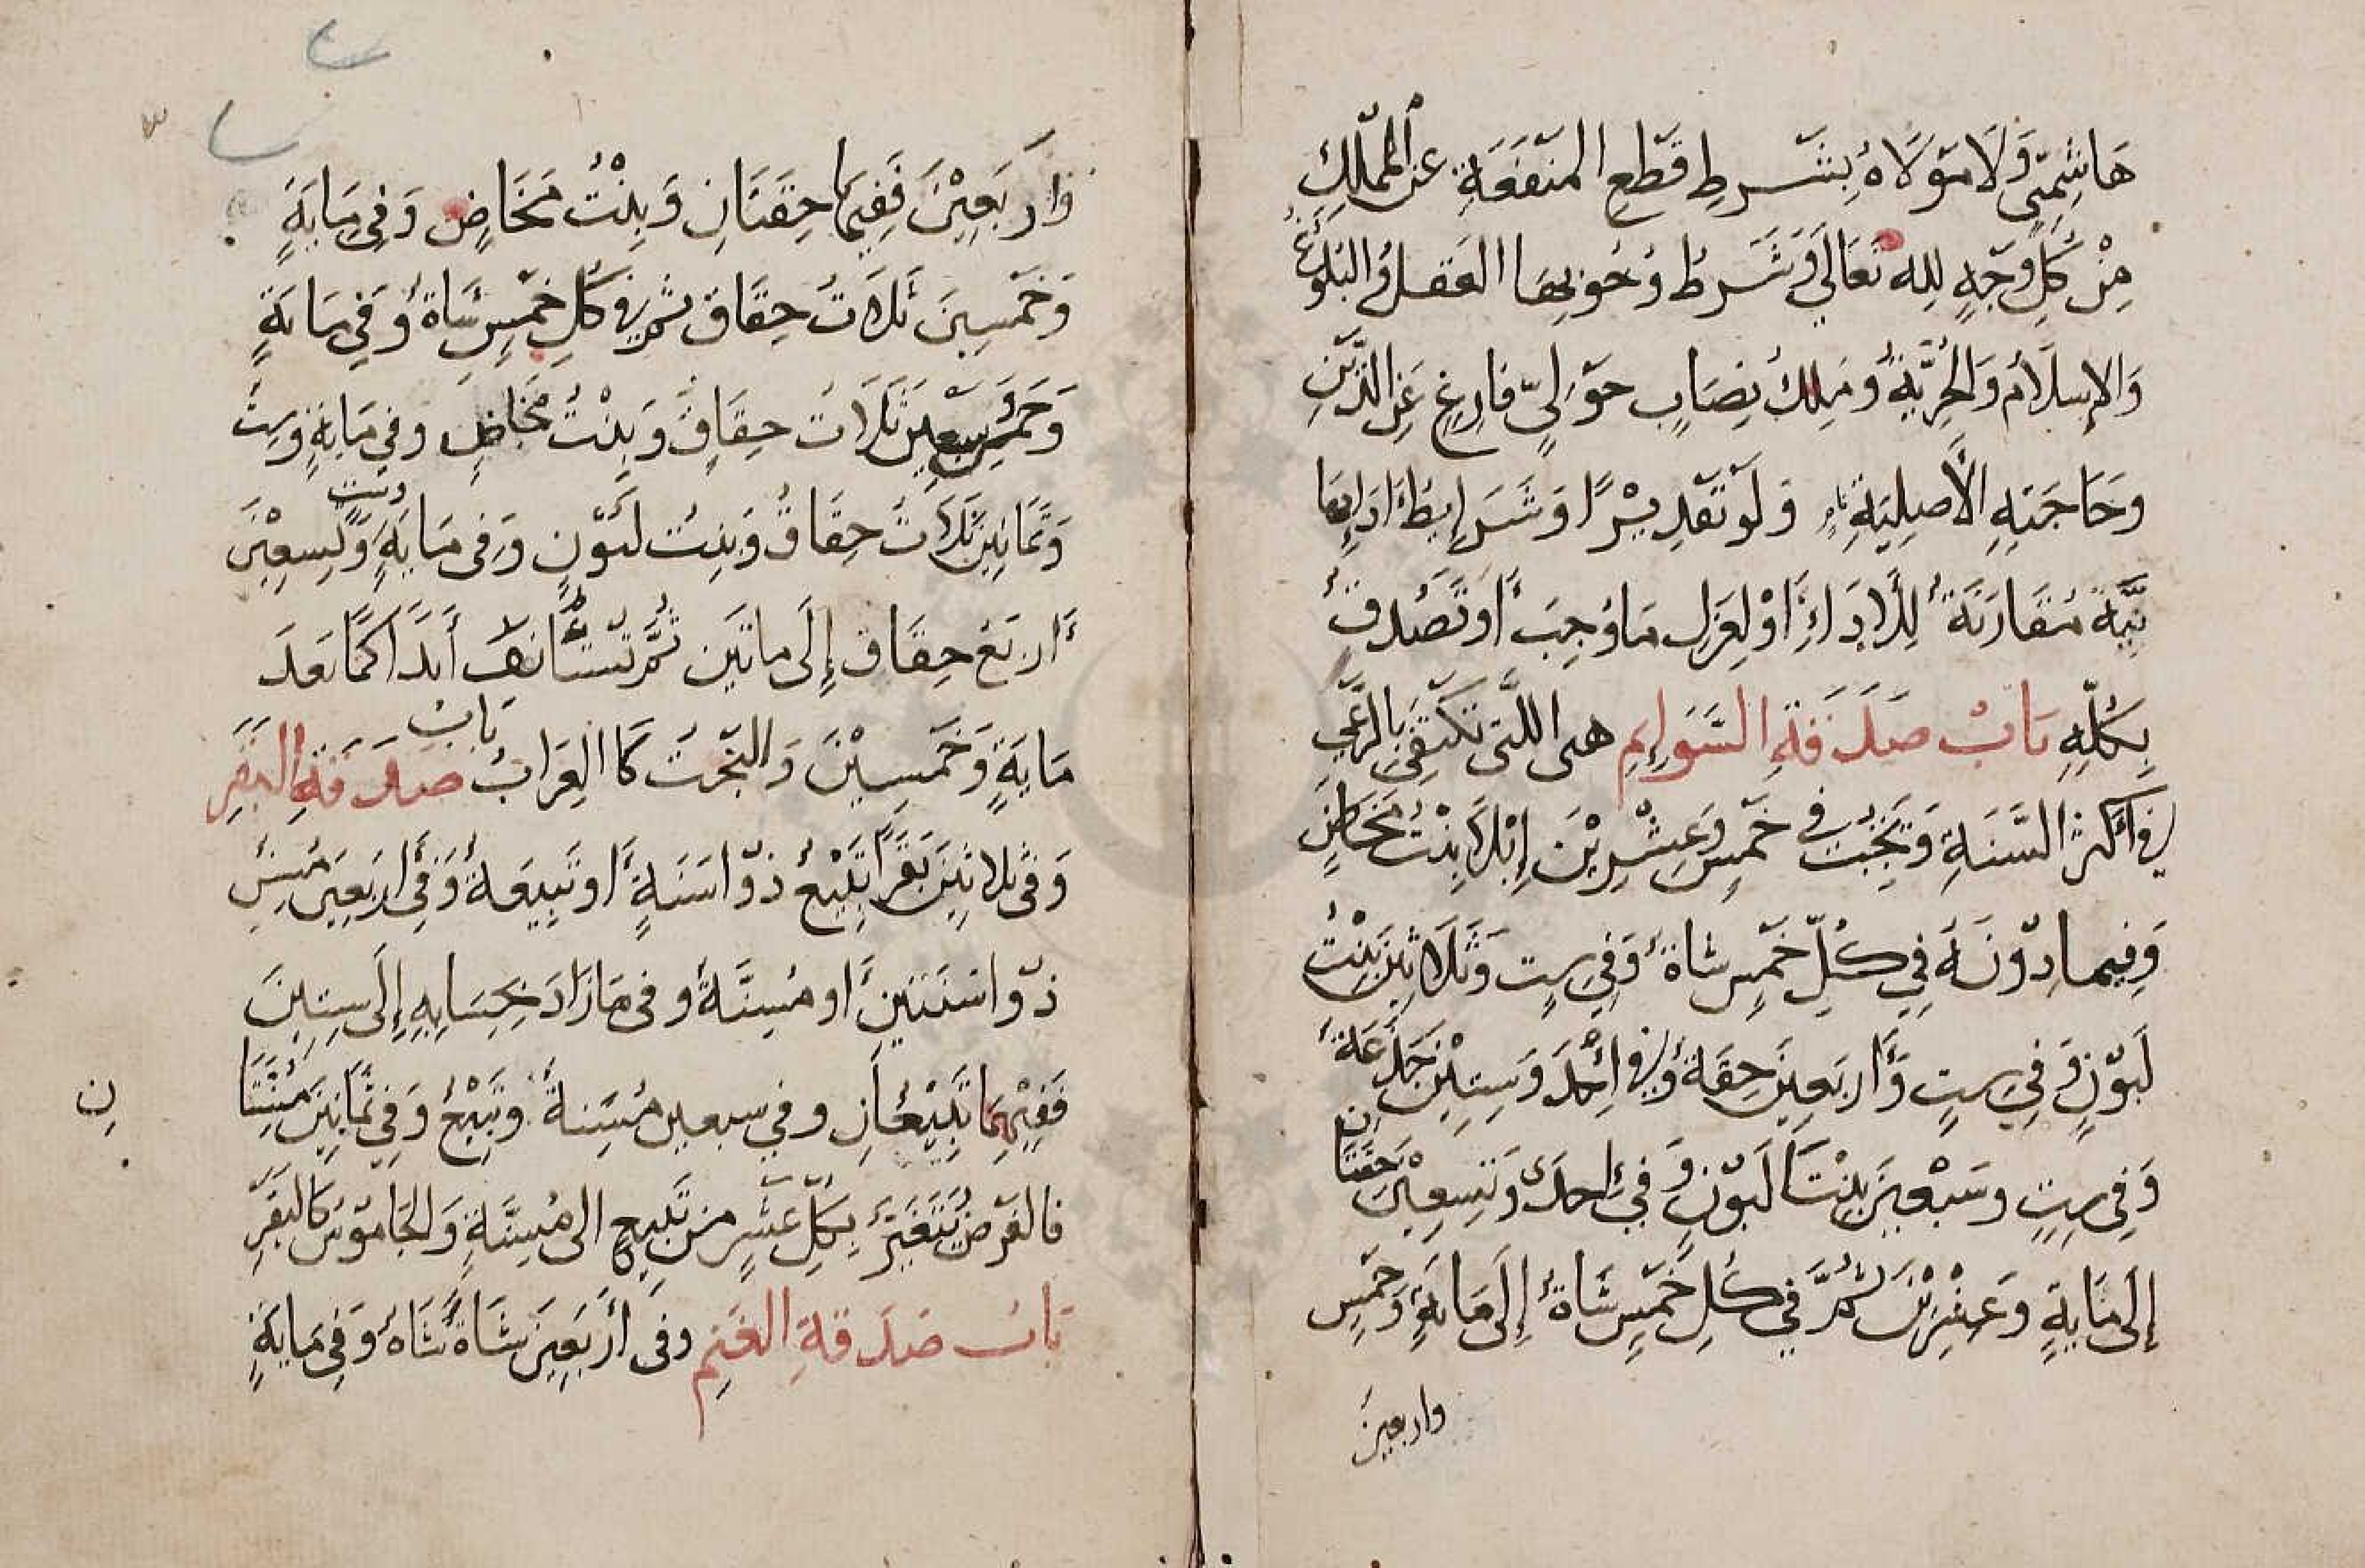 هَاشِمِيٍّ وَلَا مَوْلَاهُ بِشَرطِ قَطعِ المَنْفَعَةِ عَن المُمَلِّكِ
مِنْ كُلِّ وَجْهٍ لِله تَعَالَى وَشَرطُ وُجُوبِهَا العَقلُ وَالبُلُوغُ
وَالإِسلَامُ وَالحُرِّيَّةُ وَمِلكُ نِصَابٍ حَوْلِيٍّ فَارِغٍ عَنِ الدَّيْنِ
وحَاجَتِهِ الأَصلِيَةِ نامٍ وَلَوْ تَقدِيْرًا وَشَرطُ أدَائِهَا
نِيَّةٌ مُقَارَنَةٌ لِلأَدَاءِ أَوْ لِعَزلِ مَا وُجِبَ أَو تَصَدُقٌ
بِكُلِّهِ بَابُ صَدَقَةِ السَّوَايِمِ هي اللَّتي تَكتَفِي بِالرَّعْيِ
في أَكثَرِ السَّنَةِ وَيَجِبُ في خَمسٍ وَعِشْرِيْنَ إِبِلًا بِنْتُ مَخَاضٍ
وَفِيمَا دُوْنَهُ فِي كُلِّ خَمْسٍ شاةٌ وَفِي سِتٍ وَثَلَاثِيْنَ بِنْتُ
لَبُوْنٍ وَفِي سِتٍ وَأَربَعِيْنَ حِقَةٌ وَفي إِحْدَ وَسِتِيْنَ جَذَعَةٌ
وَفِي سِتٍ وسَبْعِيْنَ بِنْتَا لَبُوْنٍ وَفِي إحدَى وَتِسعِيْنَ حِقَتَانِ
إِلَى مَايَةٍ وَعِشْرِيْنَ ثُمَّ فِي كُلِ خَمْسٍ شَاةٌ إِلَى مَايَةٍ وَخَمْسٍ
واربعينَ
وَاربَعِيْنَ فَفِيهَا حِقَتَانِ وَبِنْتُ مَخَاضٍ وَفِي مَايَةٍ
وَخَمْسِينَ ثَلَاثُ حِقَاقٍ ثم في كُلِ خَمْسٍ شَاةٌ وَفي مَايَةٍ
وَخَمْسٍ وسَبعِينَ ثَلَاثُ حِقَاقٍ وَبِنْتُ مَخَاضٍ وفي مَايَةٍ وَسِتٍ
وَثَمَانِينَ ثَلَاثُ حِقَاقٍ وَبِنتُ لَبُوْنٍ وَفي مَايَةٍ وستٍ وَتِسعِيْنَ
أَربَعُ حِقَاقٍ إِلَى ماتَين ثُمَّ تُسْتَانَفُ أَبَدًا كَمَا بَعدَ
مَايَةٍ وَخَمسِيْنَ وَالبُخْتُ كَا العِرَابُ بَابُ صَدَقَةِ البَقَرِ
وَفي ثلاثِيْنَ بَقَرًا تَبِيْعٌ ذُوْا سَنَةٍ أَو تَبِيعَةٌ وَفِي أَربَعِيْنَ مُسِنٌ
ذُوْا سَنَتَيْنِ أَو مُسِنَّةٌ وفي مَا زَادَ بِحِسَابِهِ إِلَى سِتِينَ
فَفِيْهِمَا تَبِيْعَانِ وفي سبعين مُسِنةٌ وتَبِيْعٌ وَفِي ثَمَانِيْنَ مُسِنَّتَا
نِ
فالفَرْضُ يَتَغَيَّرُ بِكُلِّ عَشْرٍ مِنْ تَبِيعٍ الى مُسِنَّةٍ وَالجَامُوْسُ كَالبَقَرِ
بَابُ صَدَقَةِ الغَنَمِ وفي أَربَعِيْنَ شَاةً شَاةٌ وَفِي مَايَةٍ